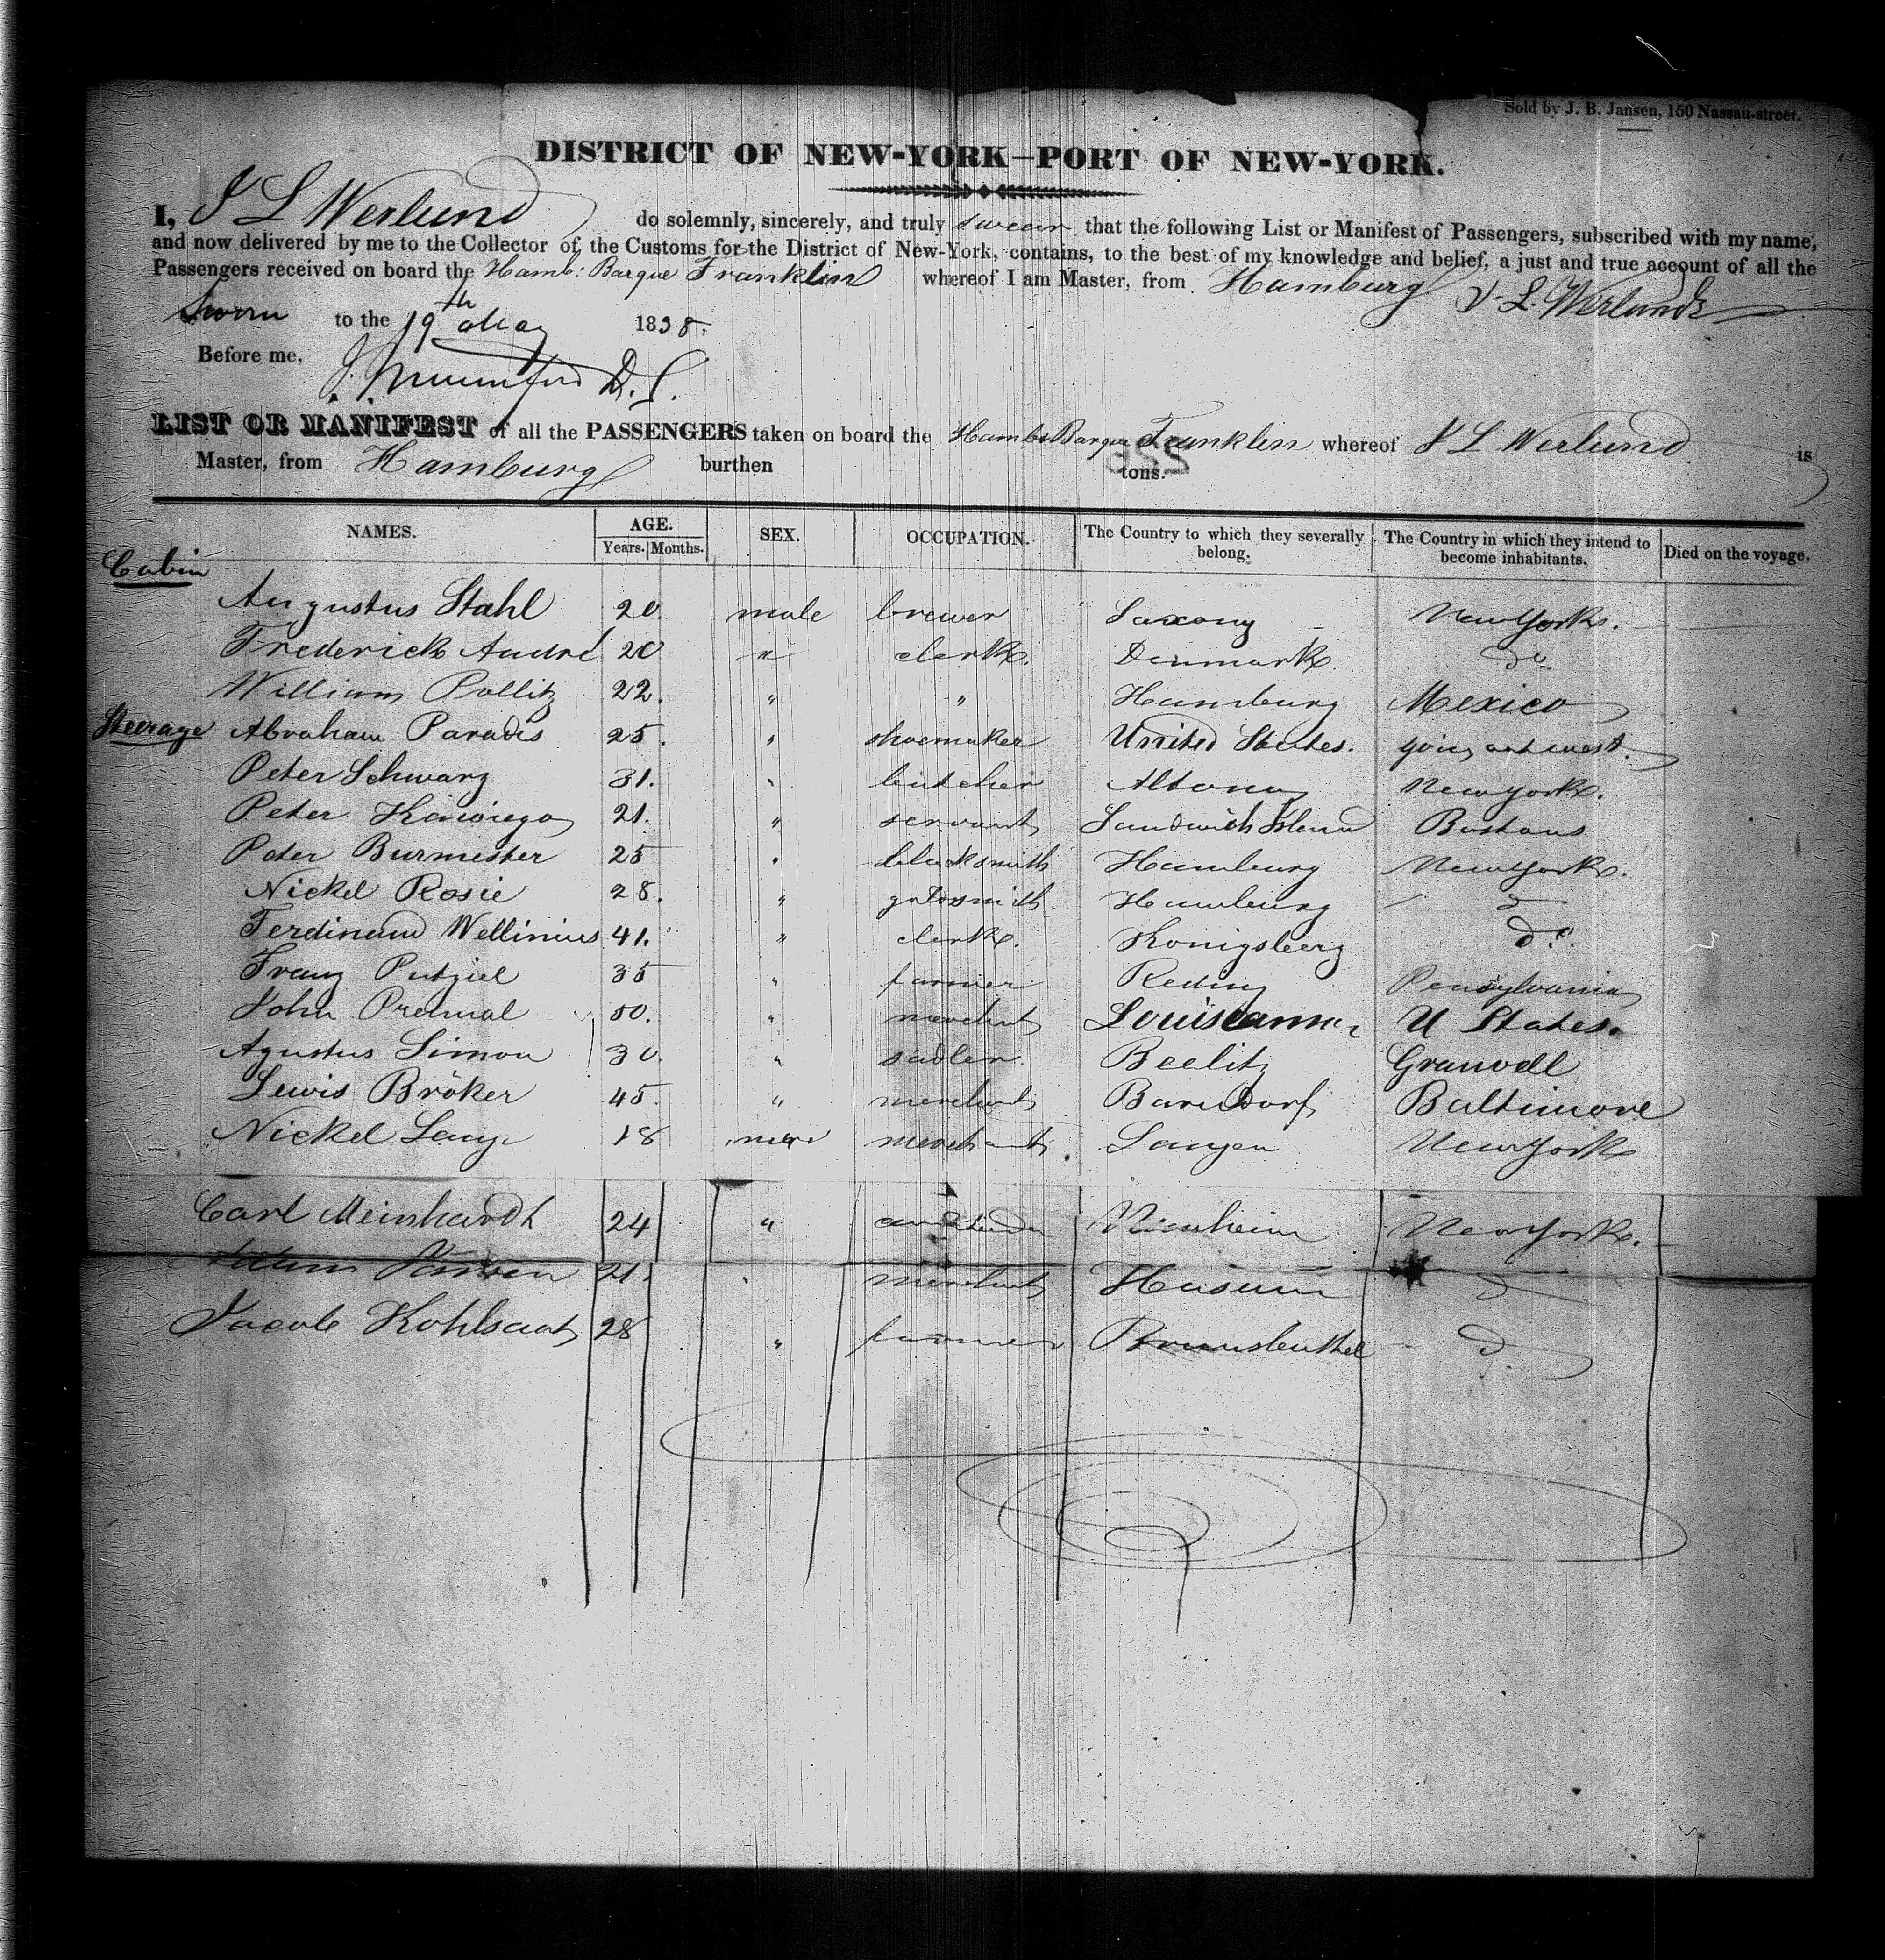 Sold by J. B. Jansen, 150 Nassau-street.
DISTRICT OF NEW-YORK—PORT OF NEW-YORK.
I, J L Werlund do solemnly, sincerely, and truly swear that the following List or Manifest of Passengers, subscribed with my name,
and now delivered by me to the Collector of the Customs for the District of New-York, contains, to the best of my knowledge and belief, a just and true account of all the
Passengers received on board the Hamb: Barque Franklin whereof I am Master, from Hamburg J. L. Werlund
Sworn to the 19th May 1838.
Before me, J. Mumford D. C.
LIST OR MANIFEST of all the PASSENGERS taken on board the Hambg Barque Franklin whereof J L Werlund is
Master, from Hamburg burthen tons.
NAMES. AGE. SEX. OCCUPATION. The Country to which they severally belong. The Country in which they intend to become inhabitants. Died on the voyage.
Years. Months.
Cabin
Augustus Stahl 20. male brewer Saxony New York.
Frederick André 20 " clerk. Denmark. do
William Pollitz 22. " " Hamburg Mexico
Steerage Abraham Parades 25. " shoemaker United States. going out west.
Peter Schwarz 31. " butcher Altona New York.
Peter 21. " servant Sandwich Island Boston
Peter Burmester 25 " blacksmith Hamburg New York.
Nickel Rosie 28. " goldsmith Hamburg do
Ferdinand Wellinius 41. " clerk. Konigsberg do.
Franz Putziel 35 " farmer Reding Pensylvania
John 50. " merchant Louisianna U States.
Agustus Simon 30. " sadler Beelitz
Lewis Bröker 45. " merchant Barndorf Baltimore
Nickel Lange 18 merchant Langen New York
Carl Meinhardt 24 " Manheim New York.
Jansen 21. " merchant Husum do
Jacob Kohlsaat 28 " farmer Brunsbuttel do